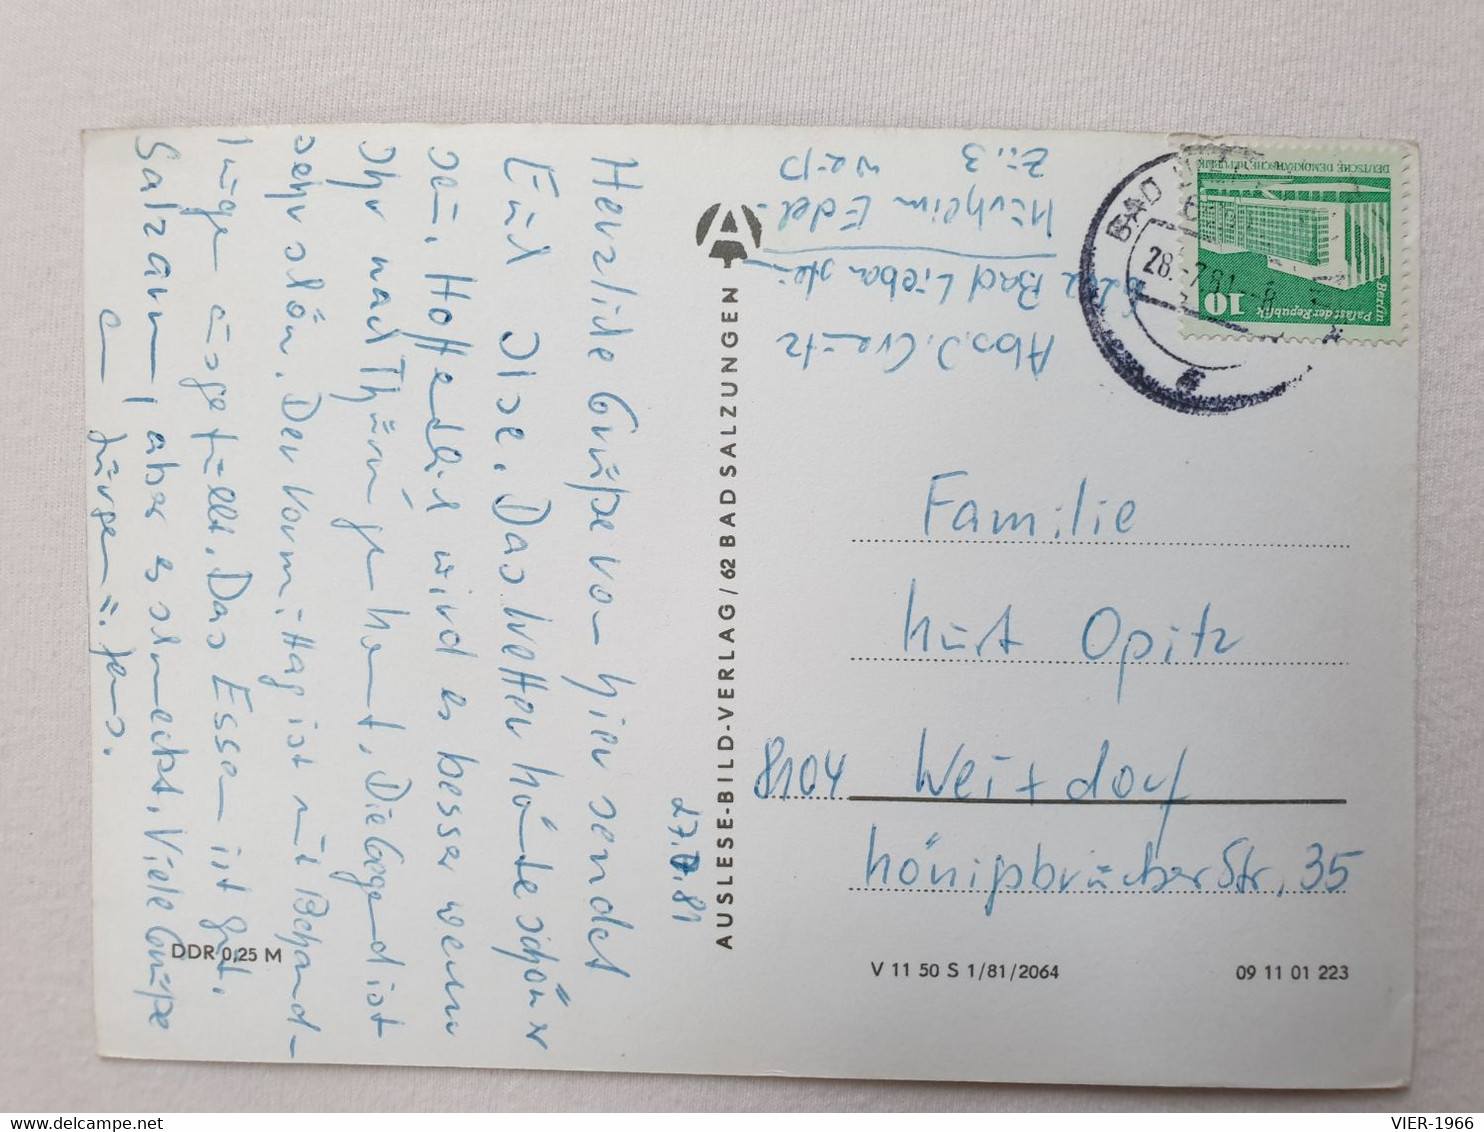 27.7.81
Herzliche Grüße von hier sendet
Euch Ilse. Das Wetter könnte schöner
sein. Hoffentlich wird es besser wenn
Ihr nach Thüringen kommt. Die Gegend ist
sehr schön. Der Vormittag ist mit Behand-
lungen ausgefüllt. Das Essen ist gut.
Salzarm, aber es schmeckt. Viele Grüße
an Jürgen u. Jens.
DDR 0,25 M
AUSLESE-BILD-VERLAG / 62 BAD SALZUNGEN
A
Abs. I. Creutz
Bad Liebenstein
Kurheim Edel-
weiß
Zi. 3
BAD
28.-7.81.-8
DEUTSCHE DEMOKRATISCHE REPUBLIK
10
Berlin
Palast der Republik
Familie
Kurt Opitz
8104 Weixdorf
Königsbrücker Str. 35
V 11 50 S 1/81/2064
09 11 01 223
VIER-1966